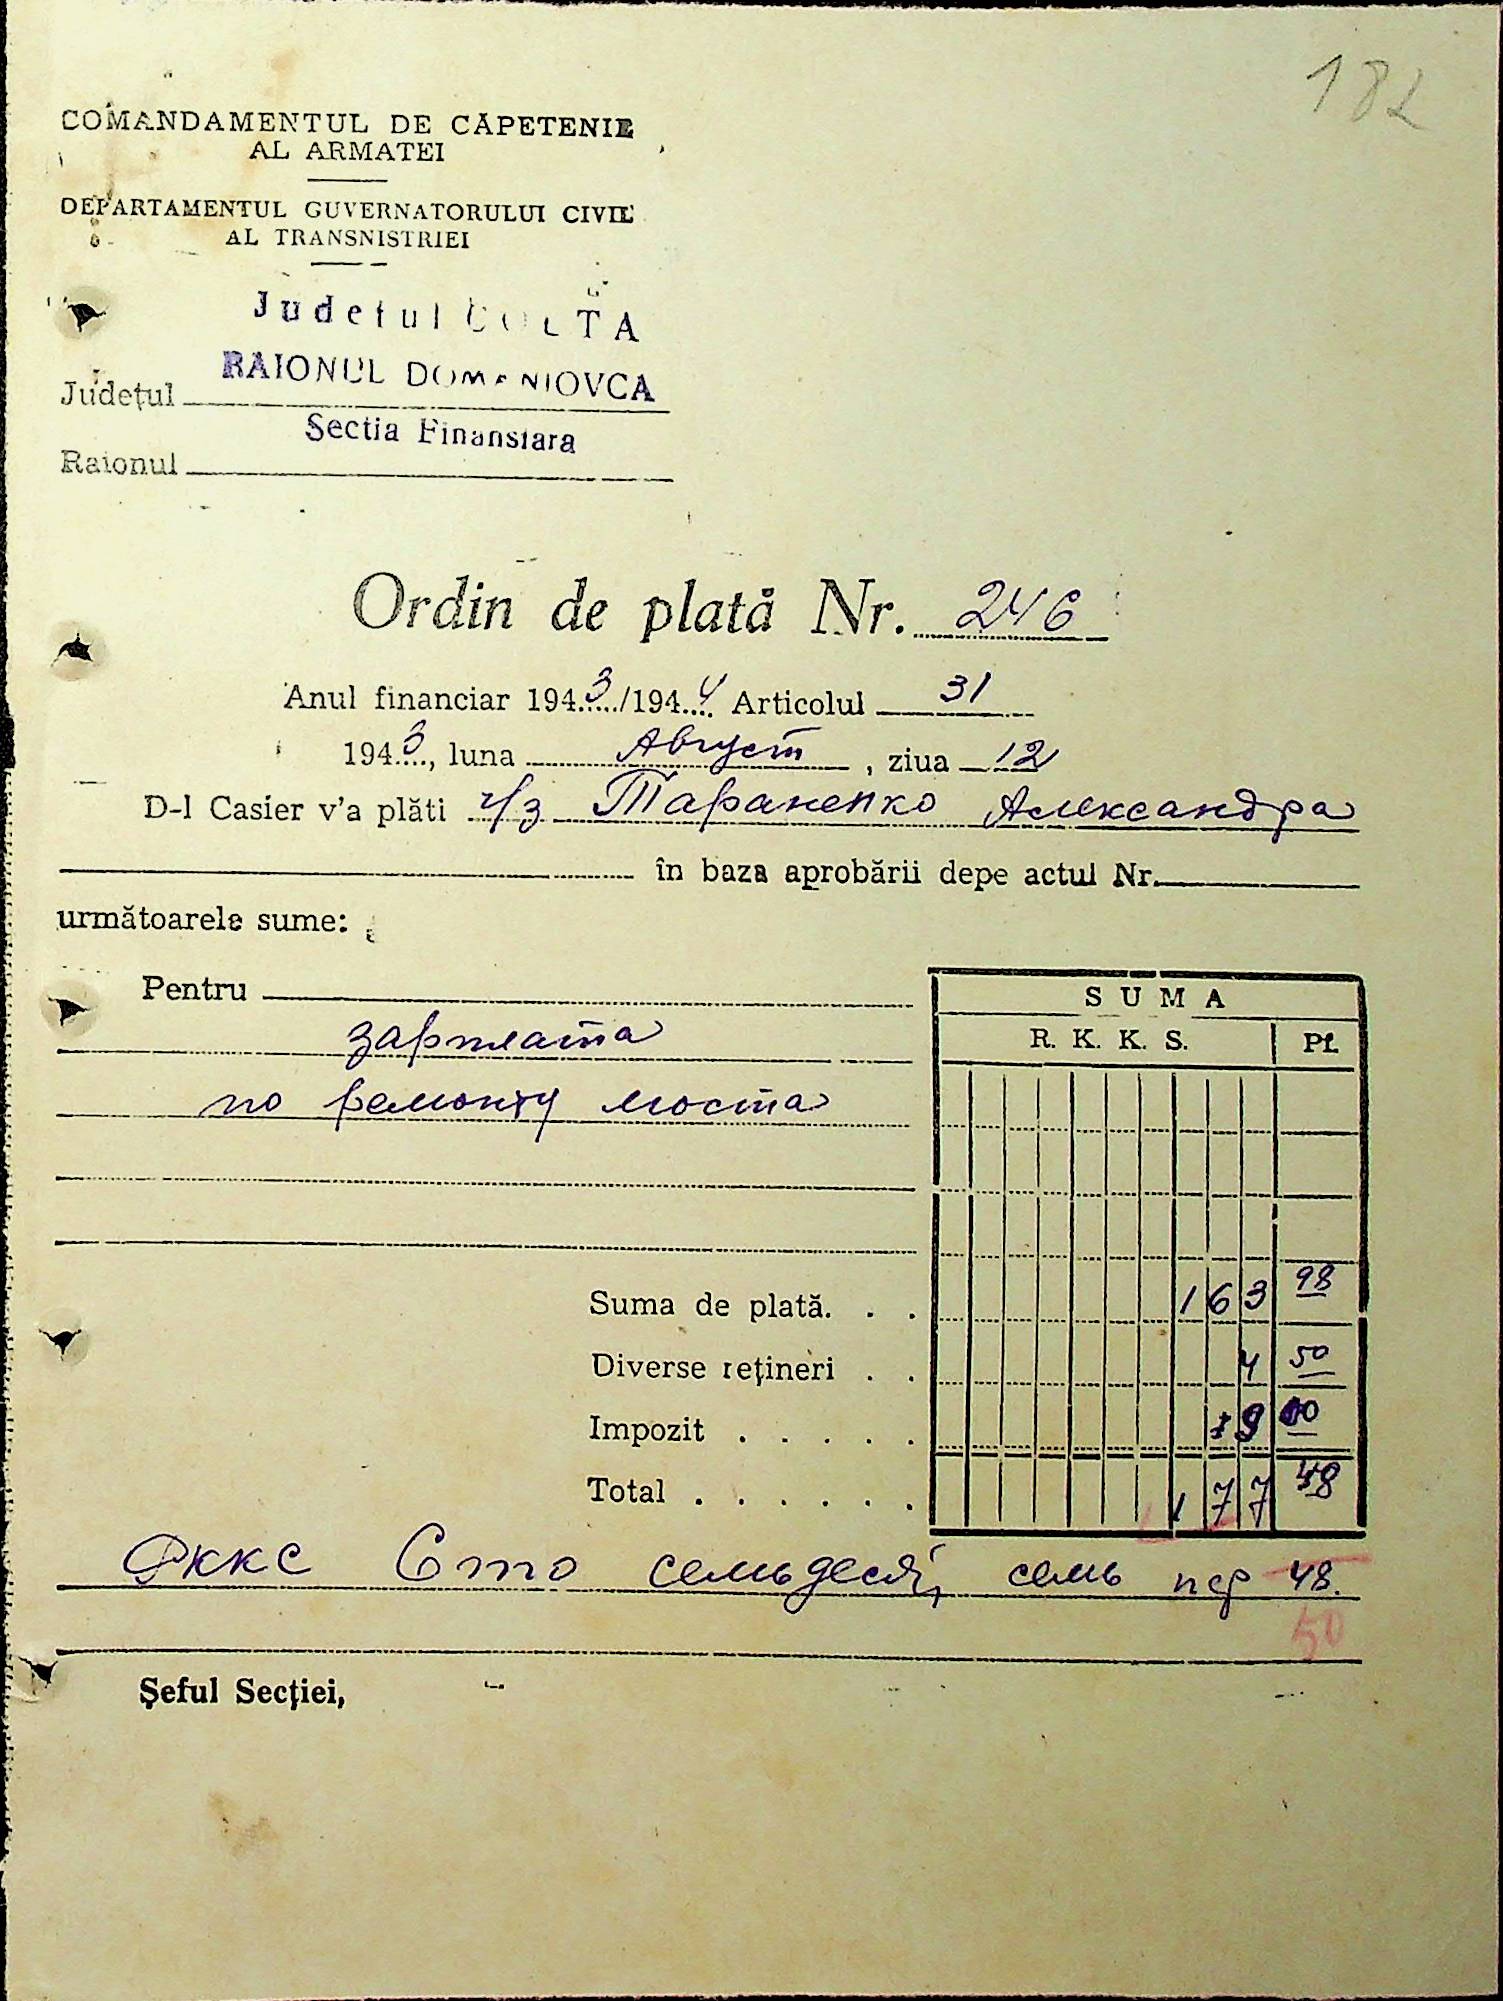 182
COMANDAMENTUL DE CĂPETENIE
AL ARMATEI
DEPARTAMENTUL GUVERNATORULUI CIVIL
AL TRANSNISTRIEI
Judetul GOLTA
RAIONUL DOMANIOVCA
Județul
Sectia Finansiara
Raionul
Ordin de plată Nr. 246
Anul financiar 1943/1944 Articolul 31
1943, luna Август, ziua 12
D-l Casier v'a plăti ч/з Тараненко Александра
în baza aprobării depe actul Nr.
următoarele sume:
Pentru
SUMA
R. K. K. S. Pf.
зарплата
по ремонту моста
Suma de plată. . . 163 98
Diverse rețineri . . 4 50
Impozit . . . . . 9 00
Total . . . . . . 177 48
Рккс Сто семьдесят семь пф 48.
50
Șeful Secției,